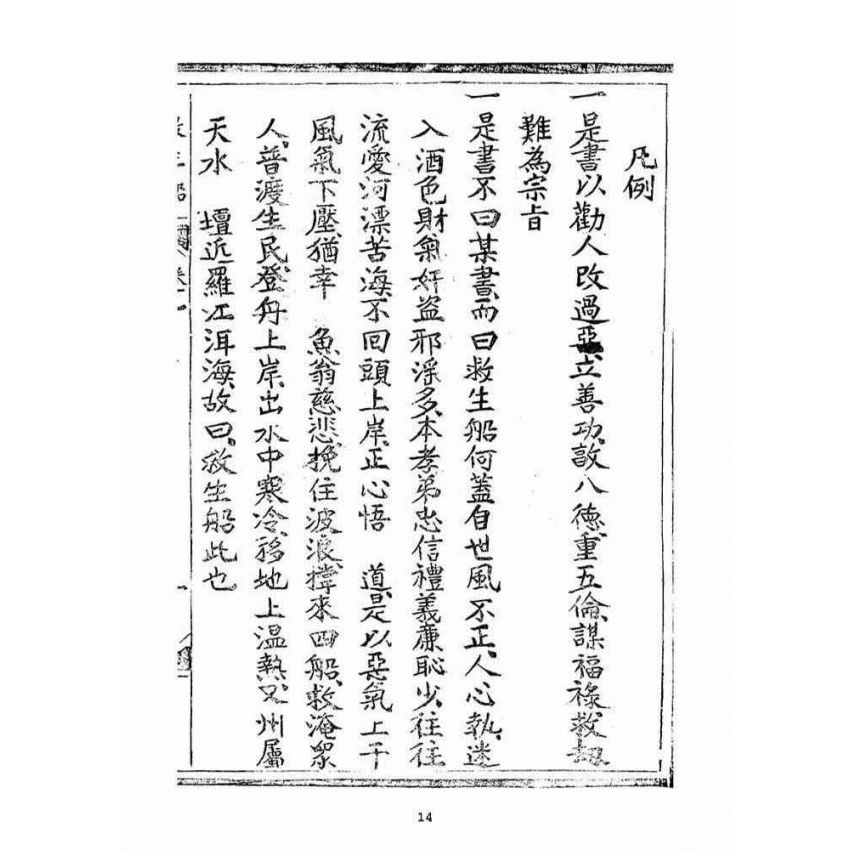 凡例
一是書以勸人改過惡、立善功、敦八德、重五倫、謀福祿救劫
難為宗旨
一是書不曰某書而曰救生船何蓋自世風不正、人心執迷
入酒色財氣奸盜邪淫多、本孝弟忠信禮義廉恥少、往往
流愛河漂苦海不回頭上岸、正心悟 道、是以惡氣上干
風氣下壓、猶幸 魚翁慈悲、挽住波浪、撑來四船、救淹眾
人、普渡生民、登舟上岸、出水中寒冷、移地上溫熱、又州屬
天水 壇近羅江洱海、故曰、救生船此也
救生船 卷一
14